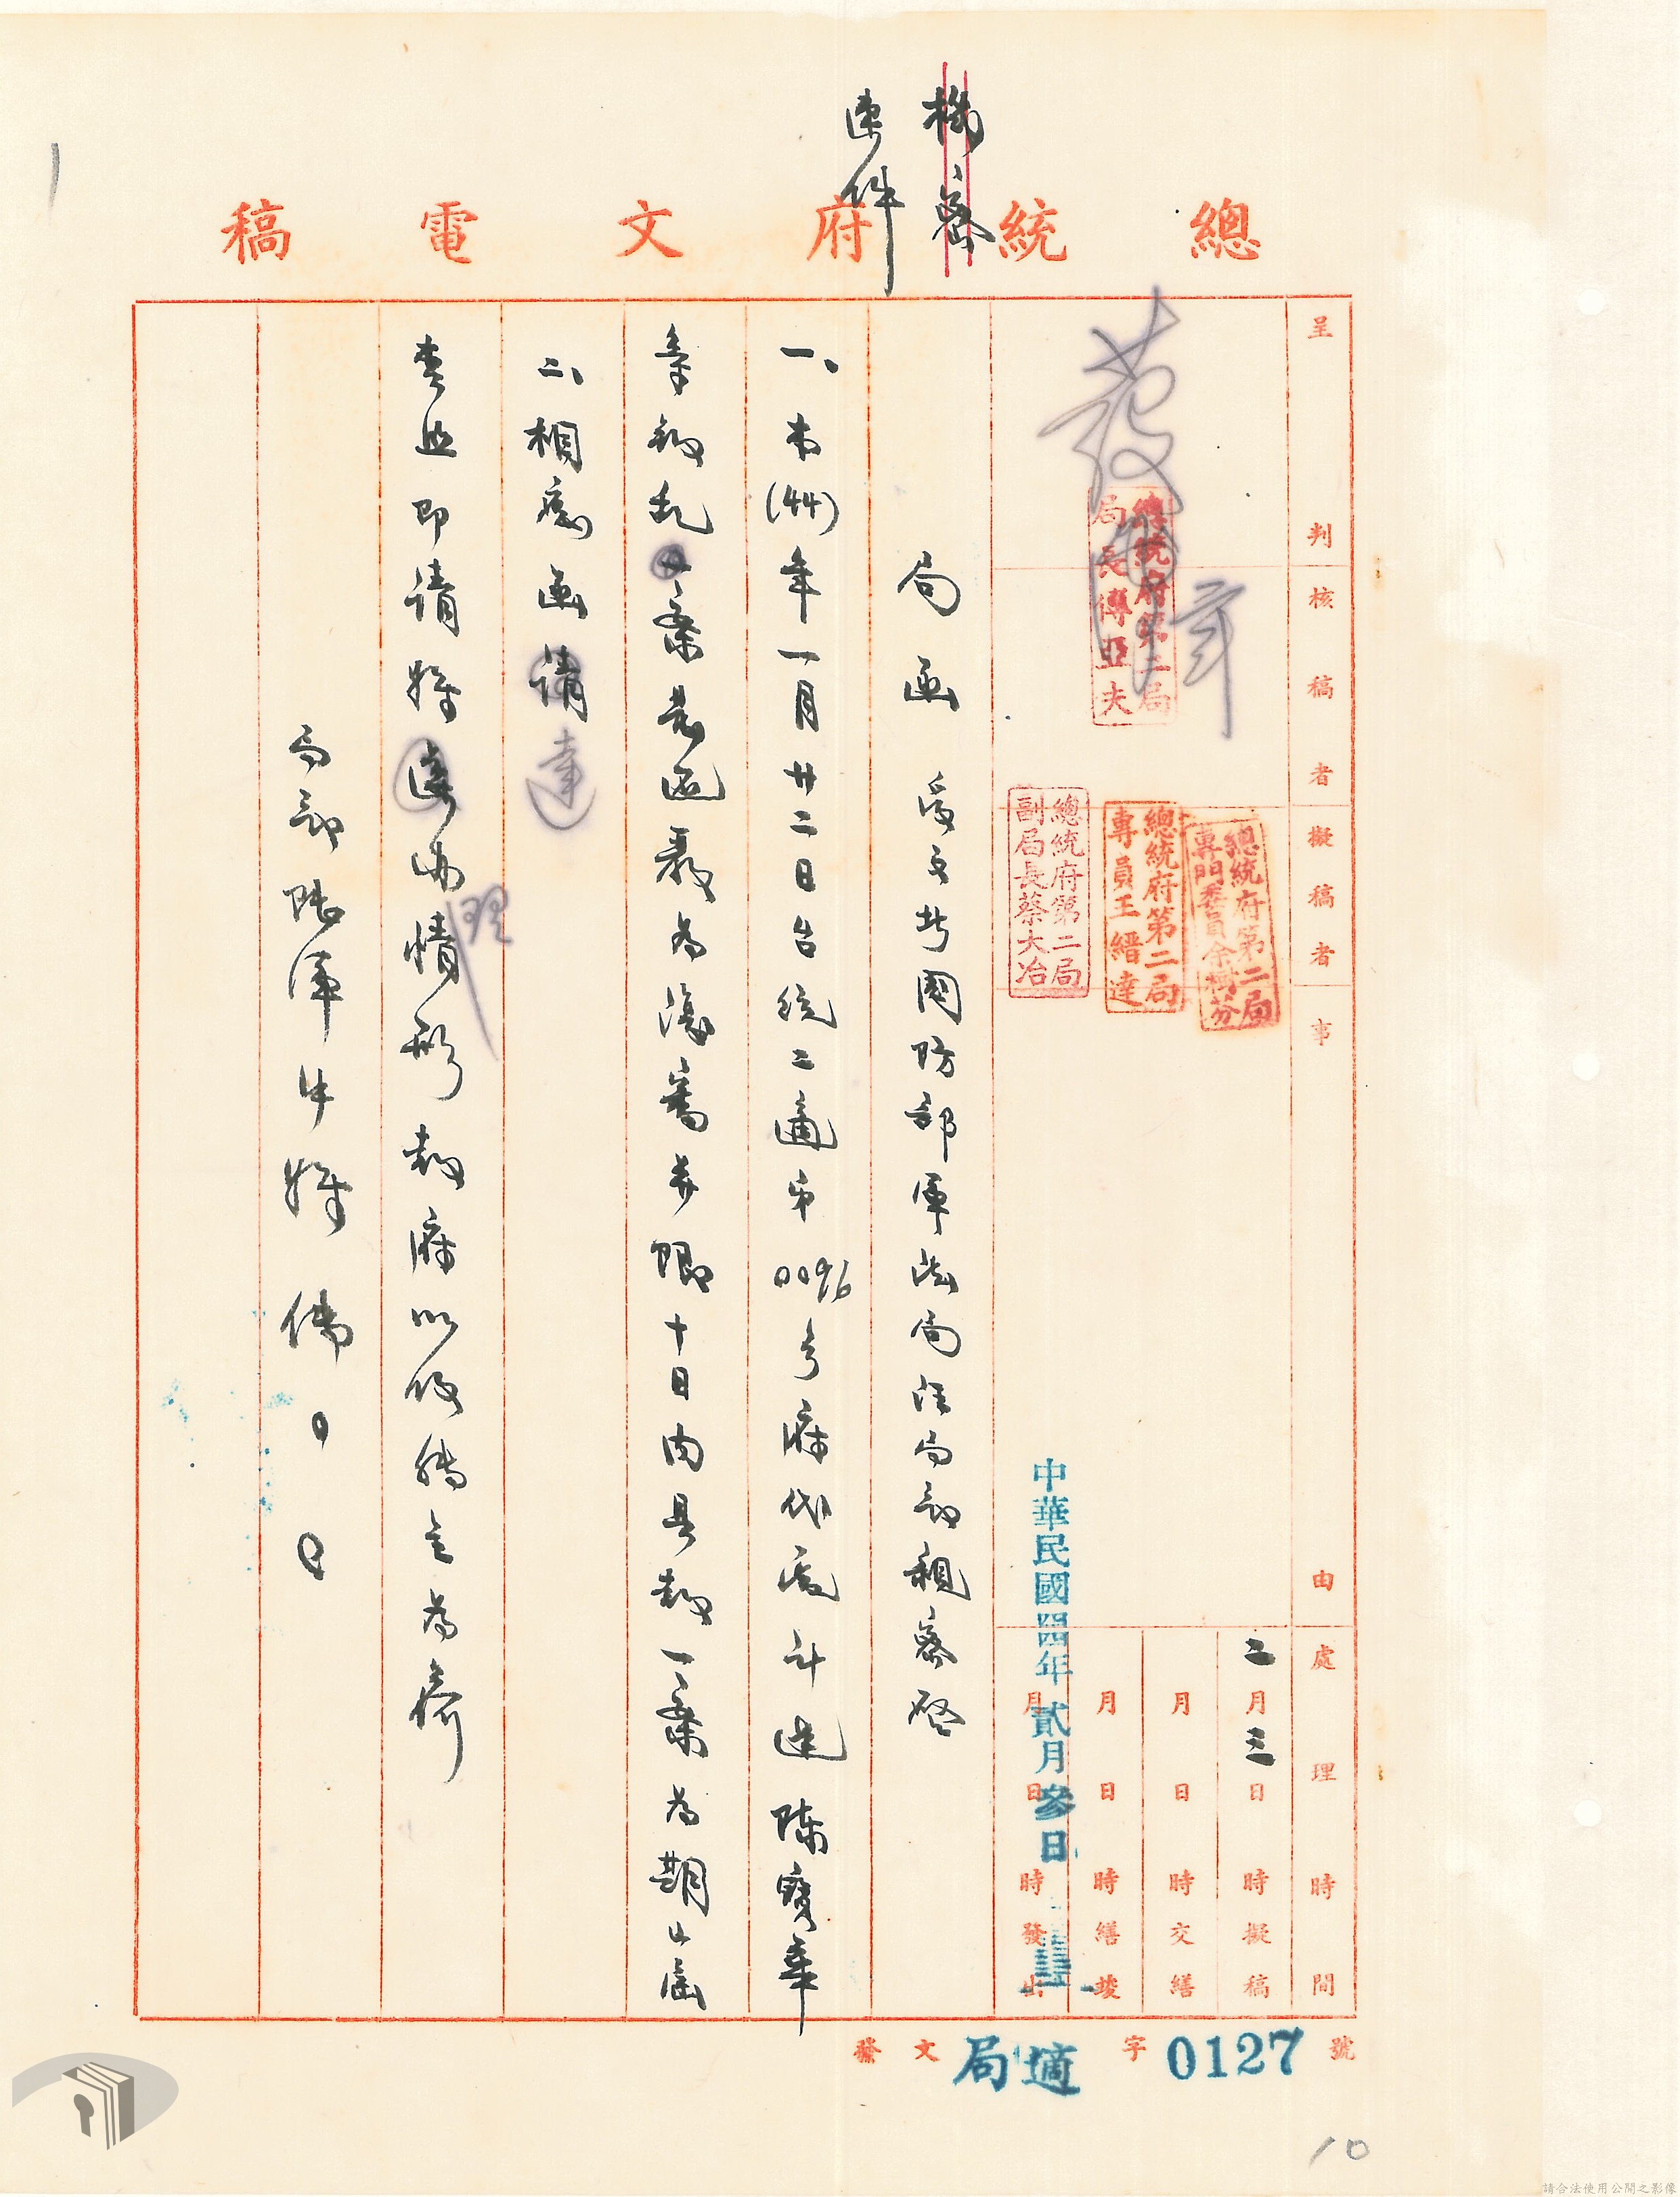 機密
速件
總統府文電稿
呈判
核稿者
擬稿者
事由
處理時間
發
總統府第二局
局長傅亞夫
總統府第二局
專門委員余樹芬
總統府第二局
專員王縉達
總統府第二局
副局長蔡大冶
二月三日時擬稿
月日時交繕
月日時繕竣
月日時發出
中華民國四四年貳月參日
局函 受文者國防部軍法局汪局長親察啓
一、本(44)年一月廿二日台統二適字0096號代電計達陳寶華
等叛亂案為復審并限十日內具報一案為期已屆
二、相應函請達
查照即請將理情形報府以便轉呈為荷
局長
發文局適字0127號
10
請合法使用公開之影像